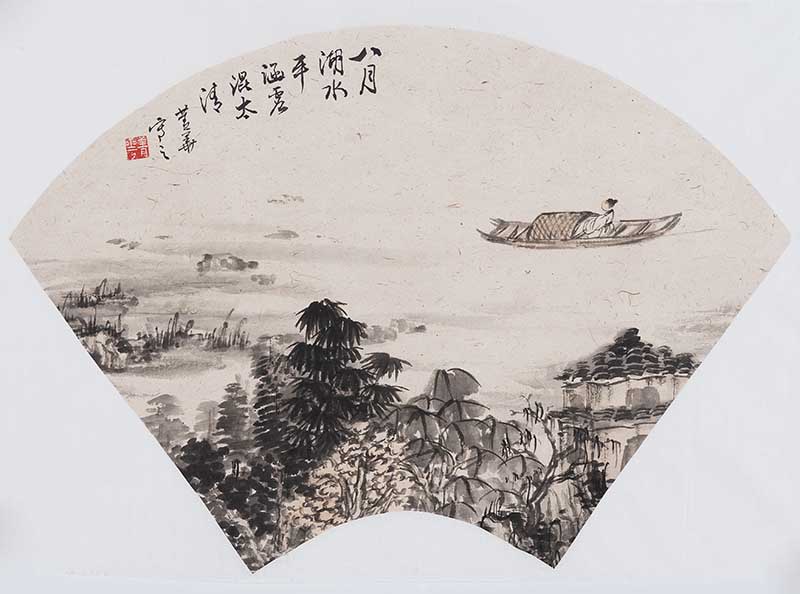 八月
湖水
平
涵虚
混太
清
写之